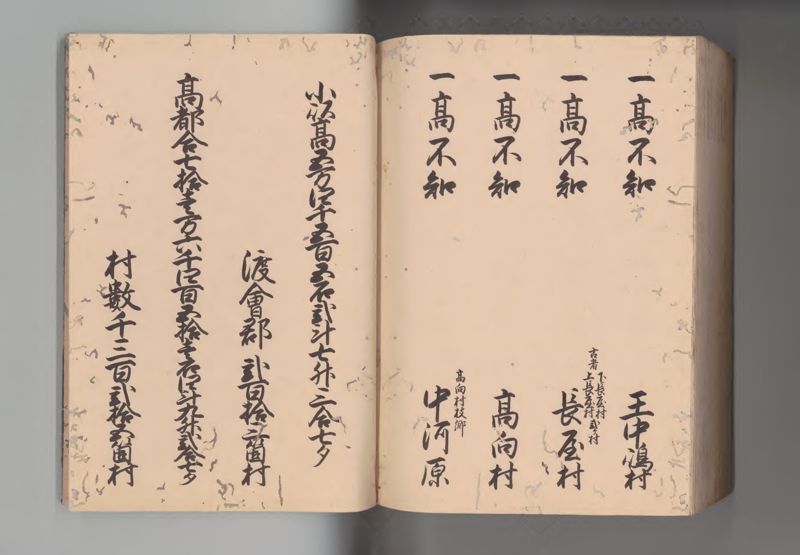 一高不知
王中嶋村
一高不知
古者
下長屋村
上長屋村貳ヶ村
長屋村
一高不知
高向村
一高不知
高向村枝郷
中河原
小以高五万四千五百五石貳斗七升三合七夕
渡會郡 貳百拾六箇村
高都合七拾壱万六千四百五拾壱石四斗九升貳合七夕
村数千三百貳拾五箇村